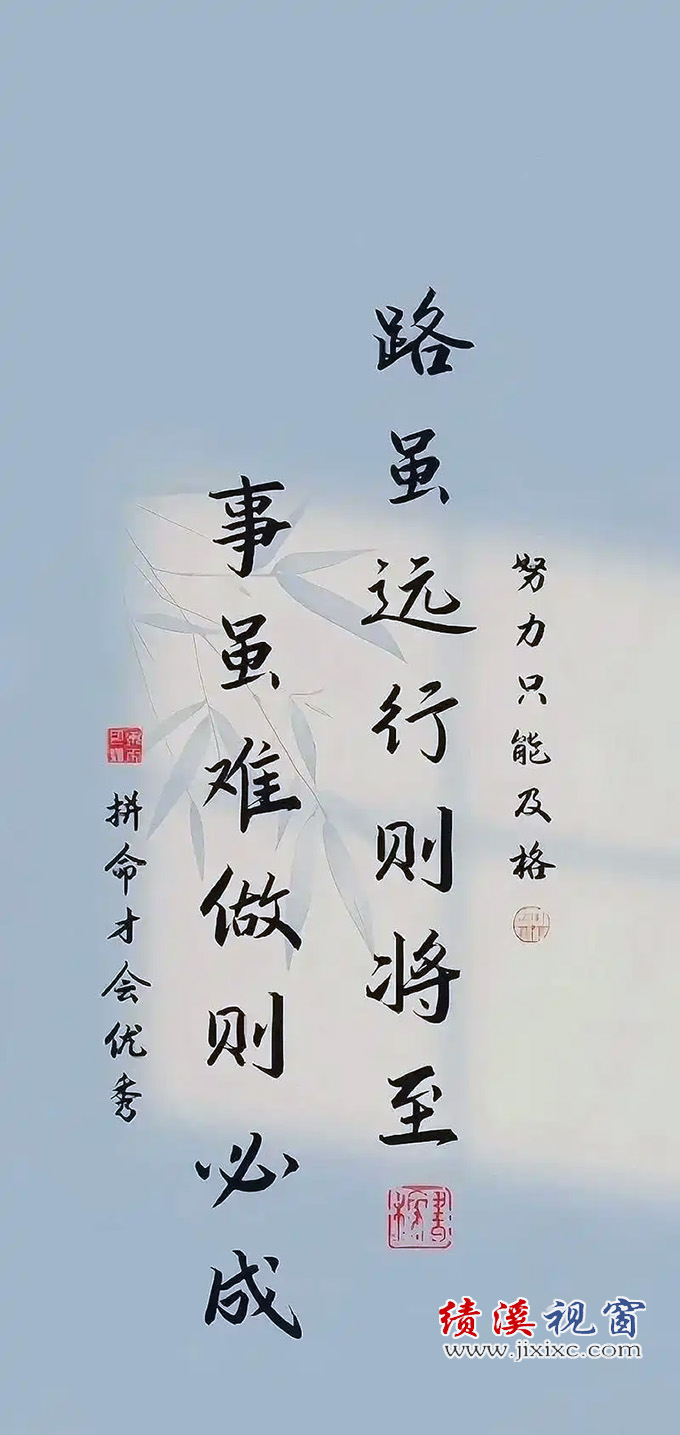 努力只能及格
路虽远行则将至
事虽难做则必成
拼命才会优秀
绩溪视窗
www.jixixc.com